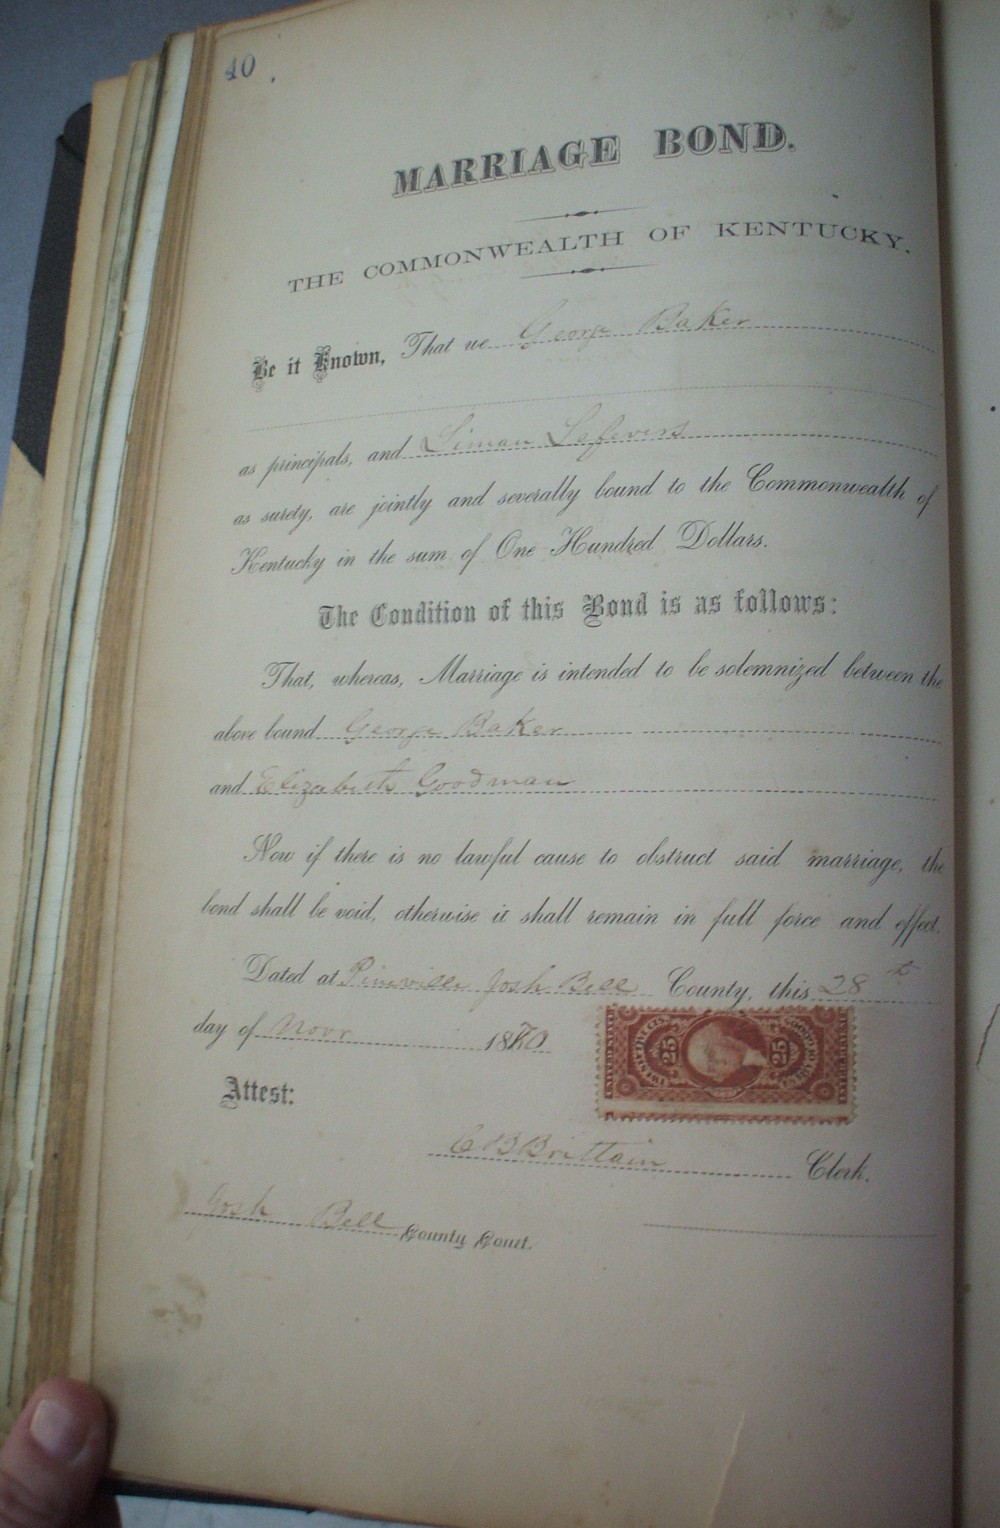 40.
MARRIAGE BOND.
THE COMMONWEALTH OF KENTUCKY.
Be it Known, That we George Baker
as principals, and Simon Lefevers
as surety, are jointly and severally bound to the Commonwealth of
Kentucky in the sum of One Hundred Dollars.
The Condition of this Bond is as follows:
That, whereas, Marriage is intended to be solemnized between the
above bound George Baker
and Elizabeth Goodman
Now if there is no lawful cause to obstruct said marriage, the
bond shall be void, otherwise it shall remain in full force and effect.
Dated at Pineville Josh Bell County, this 28th
day of Novr 1870
25 25
Attest:
C B Brittain Clerk.
Josh Bell County Court.